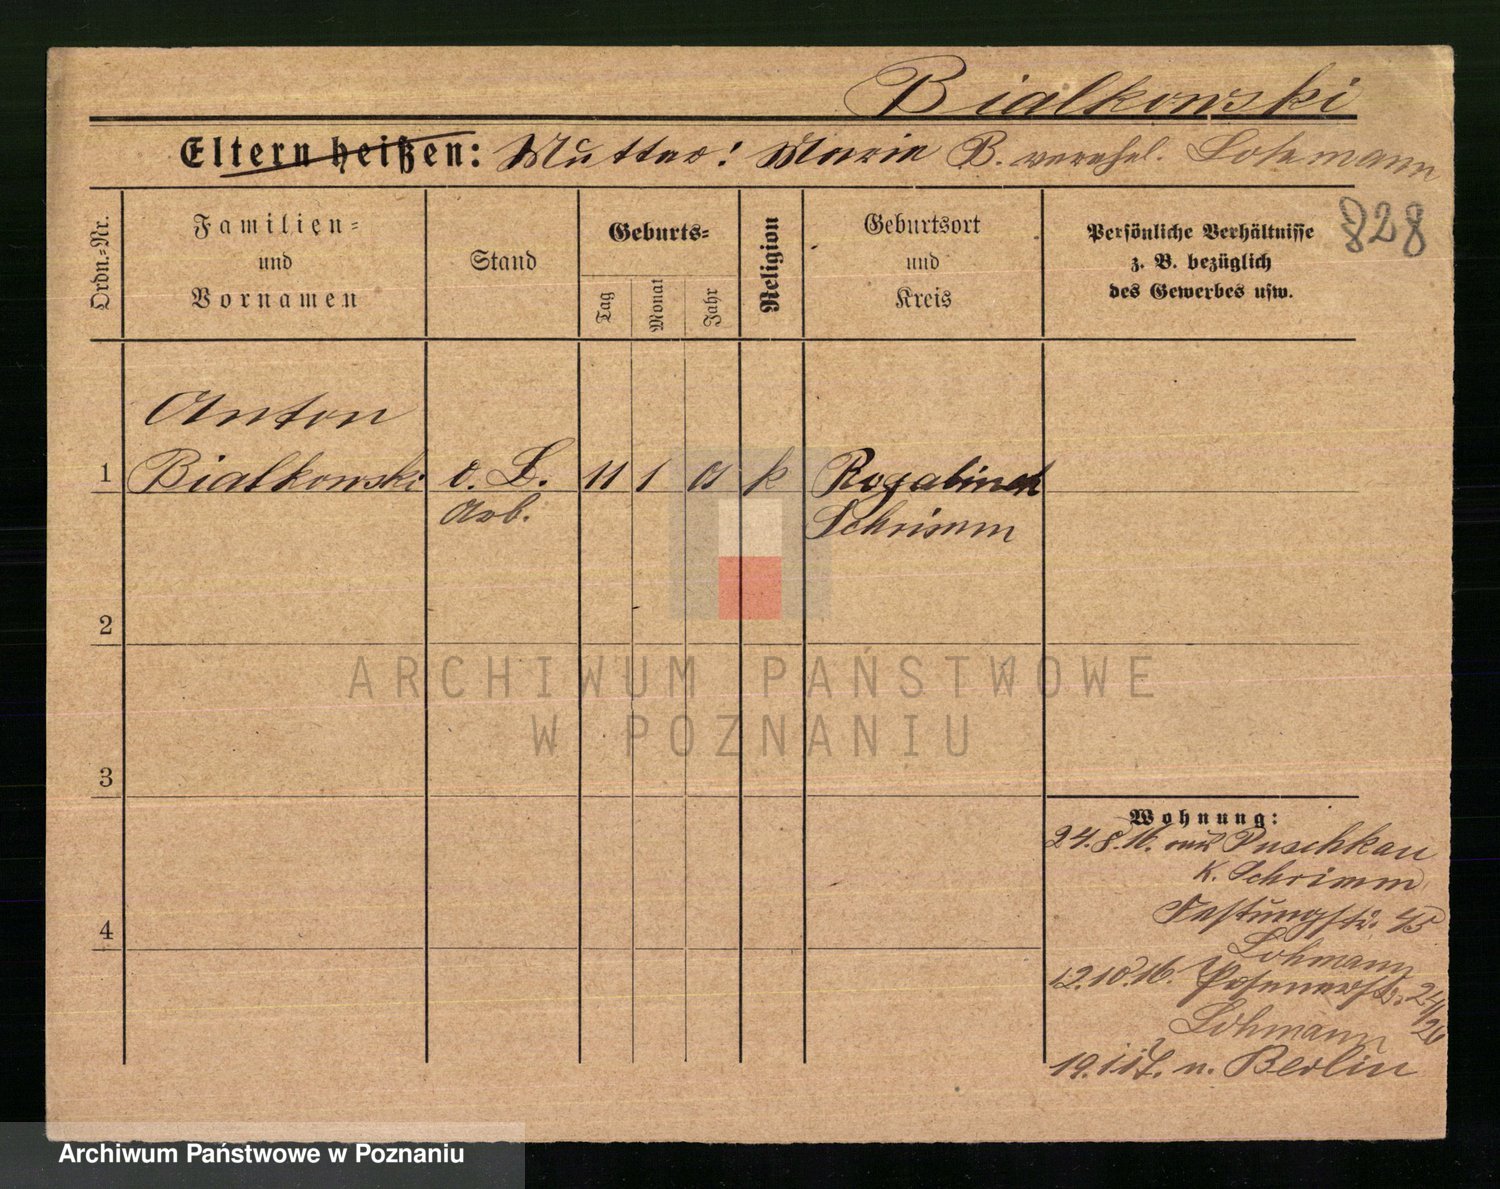 Bialkowski
Eltern heißen: Mutter: Marie B. verehel. Lohmann
828
Ordn.-Nr.
Familien-
und
Vornamen
Stand
Geburts-
Tag
Monat
Jahr
Religion
Geburtsort
und
Kreis
Persönliche Verhältnisse
z. B. bezüglich
des Gewerbes usw.
Anton
1 Bialkowski o. B. 11 1 01 k Rogalinek
Arb. Schrimm
2
ARCHIWUM PAŃSTWOWE
W POZNANIU
3
Wohnung:
24.8.16. aus Puschkau
K. Schrimm
4 Festungstr. 45
Lohmann
12.10.16. Posenerstr. 24/26
Lohmann
19.1.17. n. Berlin
Archiwum Państwowe w Poznaniu